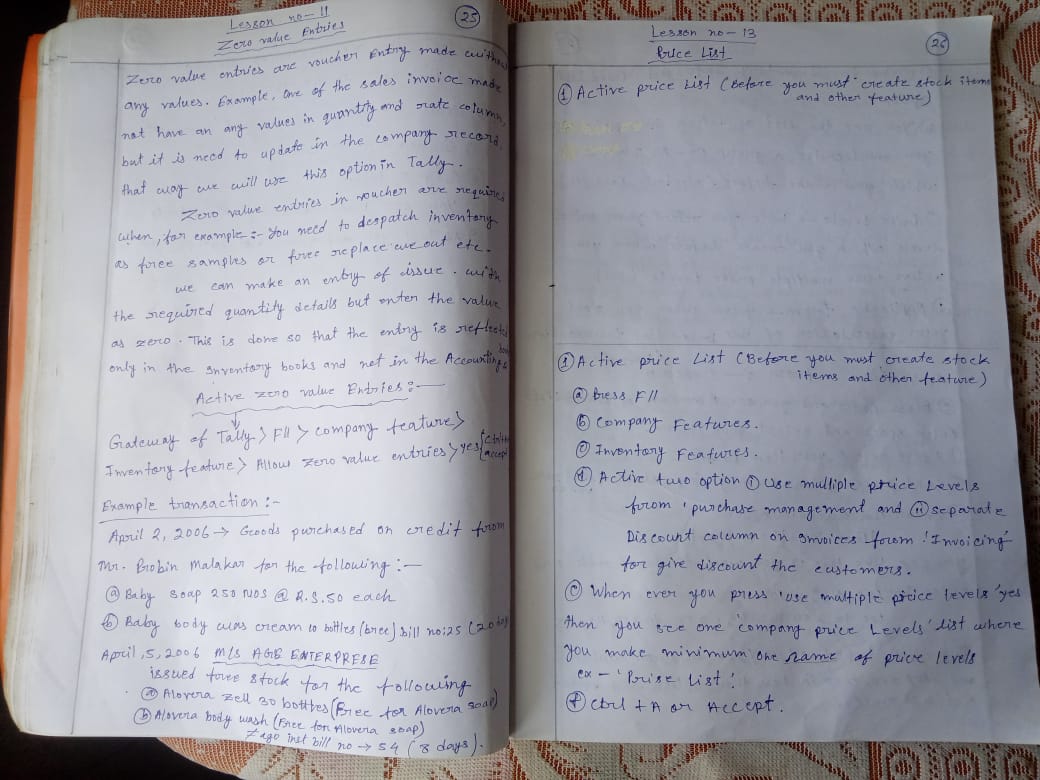 Lesson no - 11
25
Zero value Entries
Zero value entries are voucher Entry made witho
any values. Example, One of the sales invoice made
not have an any values in quantity and rate column,
but it is need to update in the company record,
that way we will use this option in Tally.
Zero value entries in voucher are required
when, for example :- You need to despatch inventory
as free samples or free replace we out etc.
we can make an entry of issue. with
the required quantity details but enter the value
as zero. This is done so that the entry is reflected
only in the Inventory books and not in the Accounting
Active zero value Entries :-
Gateway of Tally > F11 > company feature >
Inventory feature > Allow Zero value entries > yes
accept
Example transaction :-
April 2, 2006 → Goods purchased on credit from
Mr. Probin Malakar for the following :-
(a) Baby soap 250 NOS @ R.S. 50 each
(b) Baby body was cream 10 bottles (free) bill no: 25
April, 5, 2006 M/s AGE ENTERPRESE
issued free stock for the following
(a) Alovera Zell 30 bottles (Free for Alovera soap)
(b) Alovera body wash (Free for Alovera soap)
inst bill no → 54 (8 days).
Lesson no - 13
26
Price List
(1) Active price List (Before you must create stock items
and other feature)
(1) Active price List (Before you must create stock
items and other feature)
(a) Press F11
(b) Company Features.
(c) Inventory Features.
(d) Active two option (i) Use multiple price Levels
from 'purchase management and (ii) separate
Discount column on Invoices from 'Invoicing'
for give discount the customers.
(e) When ever you press 'use multiple price levels 'yes
then you see one 'company price Levels' list where
you make minimum one name of price levels
ex - 'Prise List'
(f) ctrl + A or Accept.